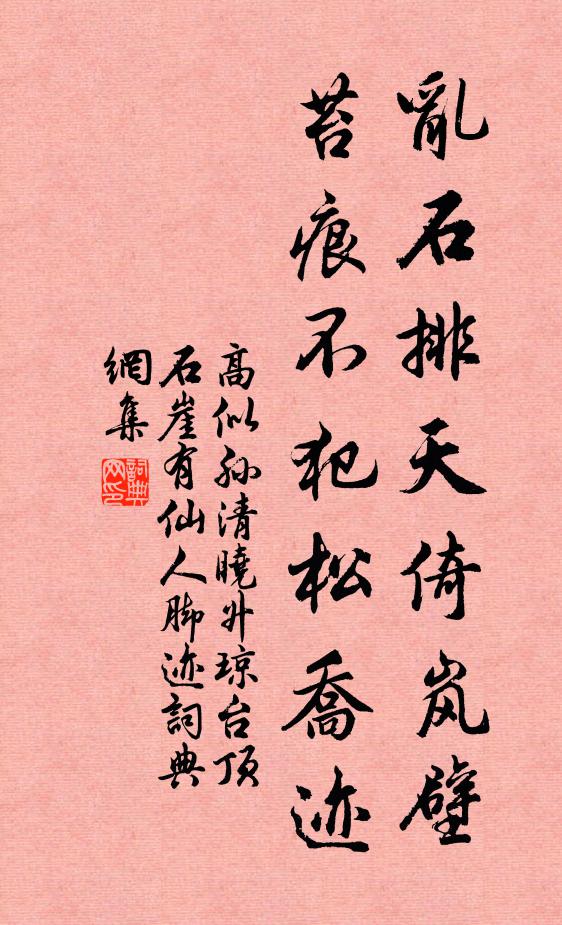 亂石排天倚岚壁
苔痕不犯松喬迹
高似孙清曉升琼台顶
石崖有仙人脚迹詞典
網集
詞典
网印